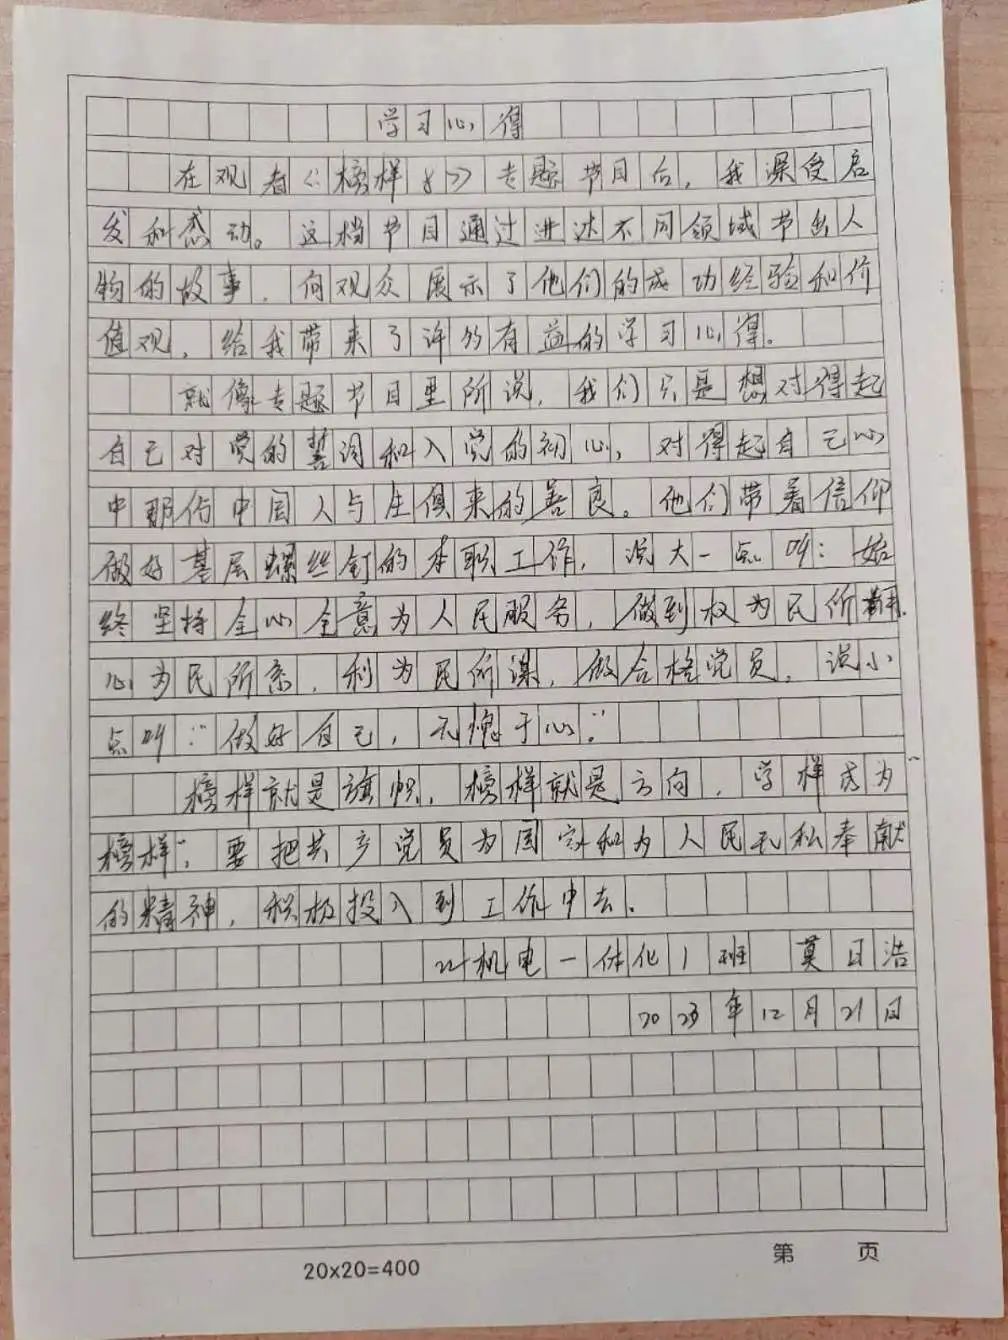 学习心得
在观看《榜样8》专题节目后，我深受启
发和感动。这档节目通过讲述不同领域节出人
物的故事，向观众展示了他们的成功经验和价
值观，给我带来了许多有益的学习心得。
就像专题节目里所说，我们只是想对得起
自己对党的誓词和入党的初心，对得起自己心
中那份中国人与生俱来的善良。他们带着信仰
做好基层螺丝钉的本职工作，说大一点叫：始
终坚持全心全意为人民服务，做到权为民所用，
心为民所系，利为民所谋，做合格党员，说小
点叫："做好自己，无愧于心。"
榜样就是旗帜，榜样就是方向，学样成为"
榜样"，要把共产党员为国家和为人民无私奉献
的精神，积极投入到工作中去。
22机电一体化1班 莫日浩
2023年12月21日
20x20=400
第 页